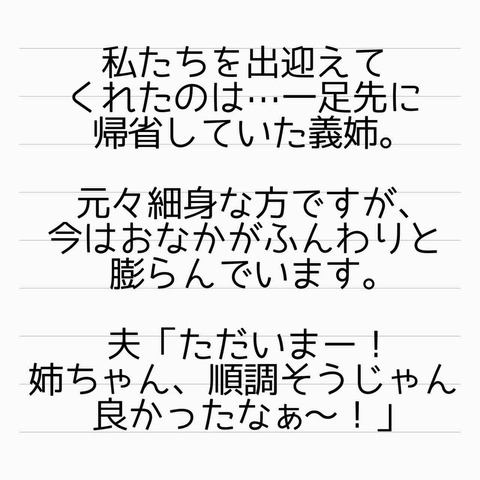 私たちを出迎えて
くれたのは…一足先に
帰省していた義姉。
元々細身な方ですが、
今はおなかがふんわりと
膨らんでいます。
夫「ただいまー！
姉ちゃん、順調そうじゃん
良かったなぁ～！」